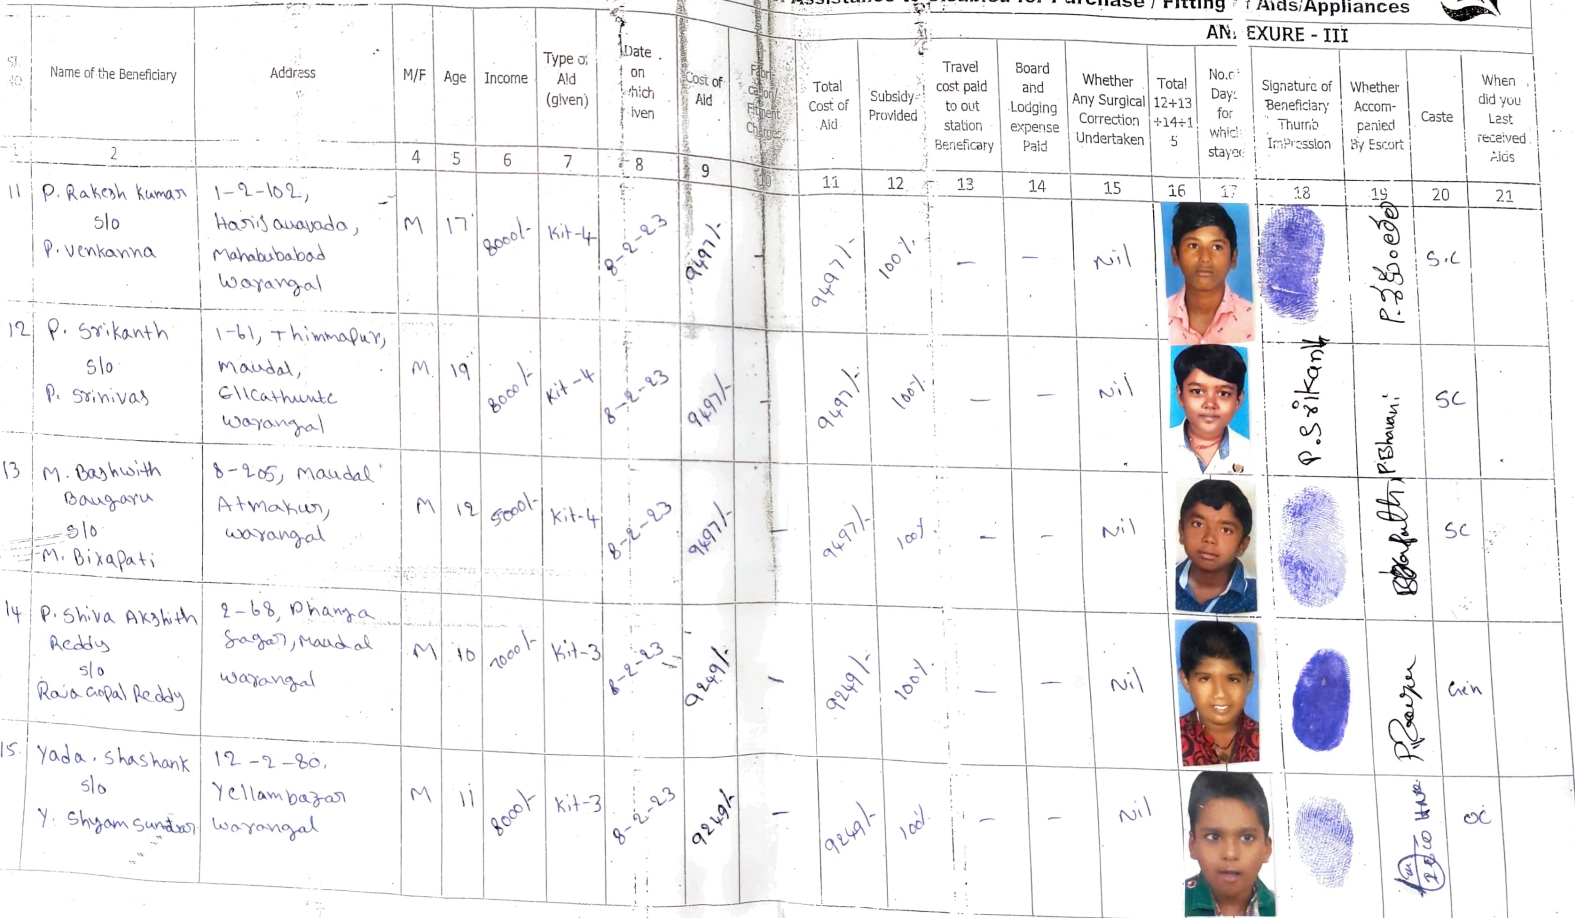 Assistance to Disabled for Purchase / Fitting Aids/Appliances
ANNEXURE - III
Sl. NO
Name of the Beneficiary
Address
M/F
Age
Income
Type of Aid (given)
Date on which given
Cost of Aid
Fabrication/ Fitment Charges
Total Cost of Aid
Subsidy Provided
Travel cost paid to out station Beneficary
Board and Lodging expense Paid
Whether Any Surgical Correction Undertaken
Total 12+13 +14+1 5
No.of Days for which stayed
Signature of Beneficiary Thumb ImPression
Whether Accom- panied By Escort
Caste
When did you Last received Aids
1 2 4 5 6 7 8 9 10 11 12 13 14 15 16 17 18 19 20 21
11 P. Rakesh Kumar S/o P. Venkanna
1-2-102, Harijanavada, Mahabubabad Warangal
M 17 8000/- Kit-4 8-2-23 9497/- - 9497/- 100% - - Nil S.C
12 P. Srikanth S/o P. Srinivas
1-61, Thimmapur, Mandal, Warangal
M 19 8000/- Kit-4 8-2-23 9497/- - 9497/- 100% - - Nil P. Srikanth P.Bhavani SC
13 M. Bashwith Bangaru S/o M. Bixapati
8-205, Mandal Atmakur, Warangal
M 12 5000/- Kit-4 8-2-23 9497/- - 9497/- 100% - - Nil SC
14 P. Shiva Akshith Reddy S/o Raja Gopal Reddy
2-68, Dharga Sagar, Mandal Warangal
M 10 7000/- Kit-3 8-2-23 9249/- - 9249/- 100% - - Nil Gen
15. Yada. Shashank S/o Y. Shyam Sundar
12-2-80, Yellambazar Warangal
M 11 8000/- Kit-3 8-2-23 9249/- - 9249/- 100% - - Nil OC